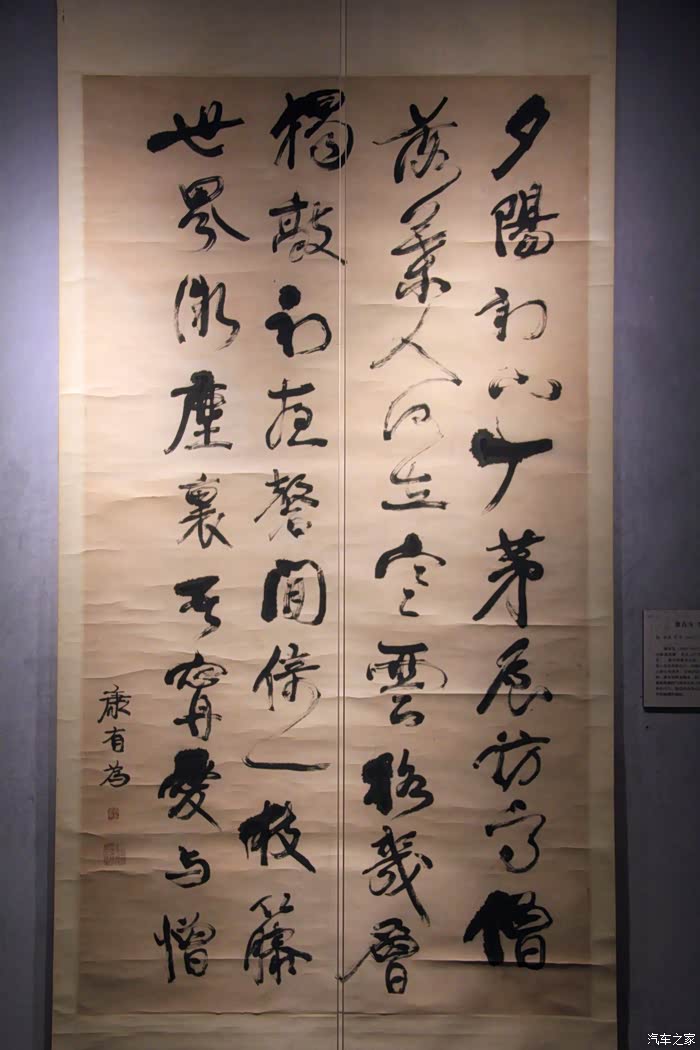 夕陽山茅屋訪高僧
落葉人何在寒雲路幾層
獨敲初夜磬閒倚一枝籐
世界微塵裏吾寧愛与憎
康有為
汽车之家